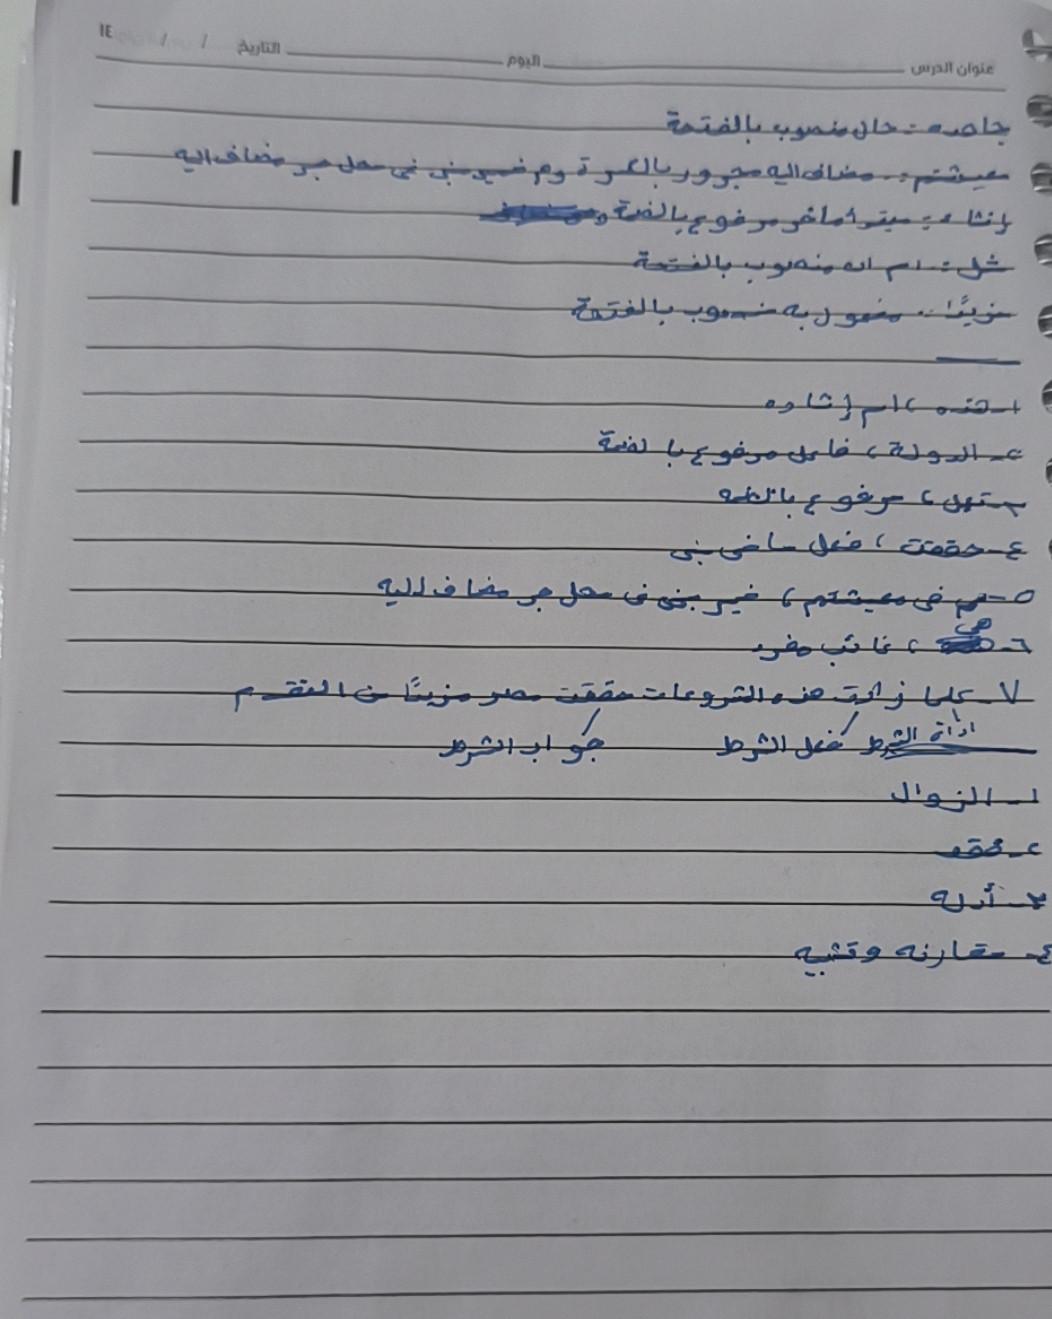 عنوان الدرس اليوم التاريخ / / ١٤
جاهده :- حال منصوب بالفتحة
معيشتهم :- مضاف إليه مجرور بالكسرة وهم ضمير مبنى فى محل جر مضاف إليه
إنشاء :- مبتدأ مأخر مرفوع بالضمة
شل :- اسم ان منصوب بالفتحة
مزيدًا :- مفعول به منصوب بالفتحة
١- هذه ، اسم إشاره
٢- الدولة ، فاعل مرفوع بالضمة
٣- ، مرفوع بالضمه
٤- حققت ، فعل ماضى مبنى
٥- هم فى معيشتهم ، ضمير مبنى فى محل جر مضاف إليه
٦- هى ، غائب مفرد
٧- كلما زادت هذه المشروعات حققت مصر مزيدًا من التقدم
اداة الشرط فعل الشرط جواب الشرط
١- الزوال
٢-
٣- أدله
٤- مقارنه وتشبيه